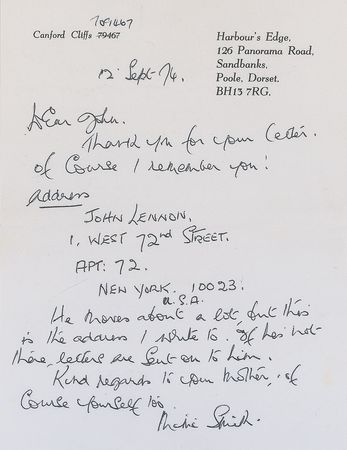 709467
Canford Cliffs 79467
Harbour's Edge,
126 Panorama Road,
Sandbanks,
Poole, Dorset.
BH13 7RG.
12 Sept. 74.
Dear John.
Thank you for your letter.
of Course I remember you!
Address
JOHN LENNON.
1, WEST 72nd STREET.
APT: 72.
NEW YORK. 10023.
U.S.A.
He moves about a lot, but this
is the address I write to. If he's not
there, letters are sent on to him.
Kind regards to your Mother, of
Course yourself too.
Mimi Smith.